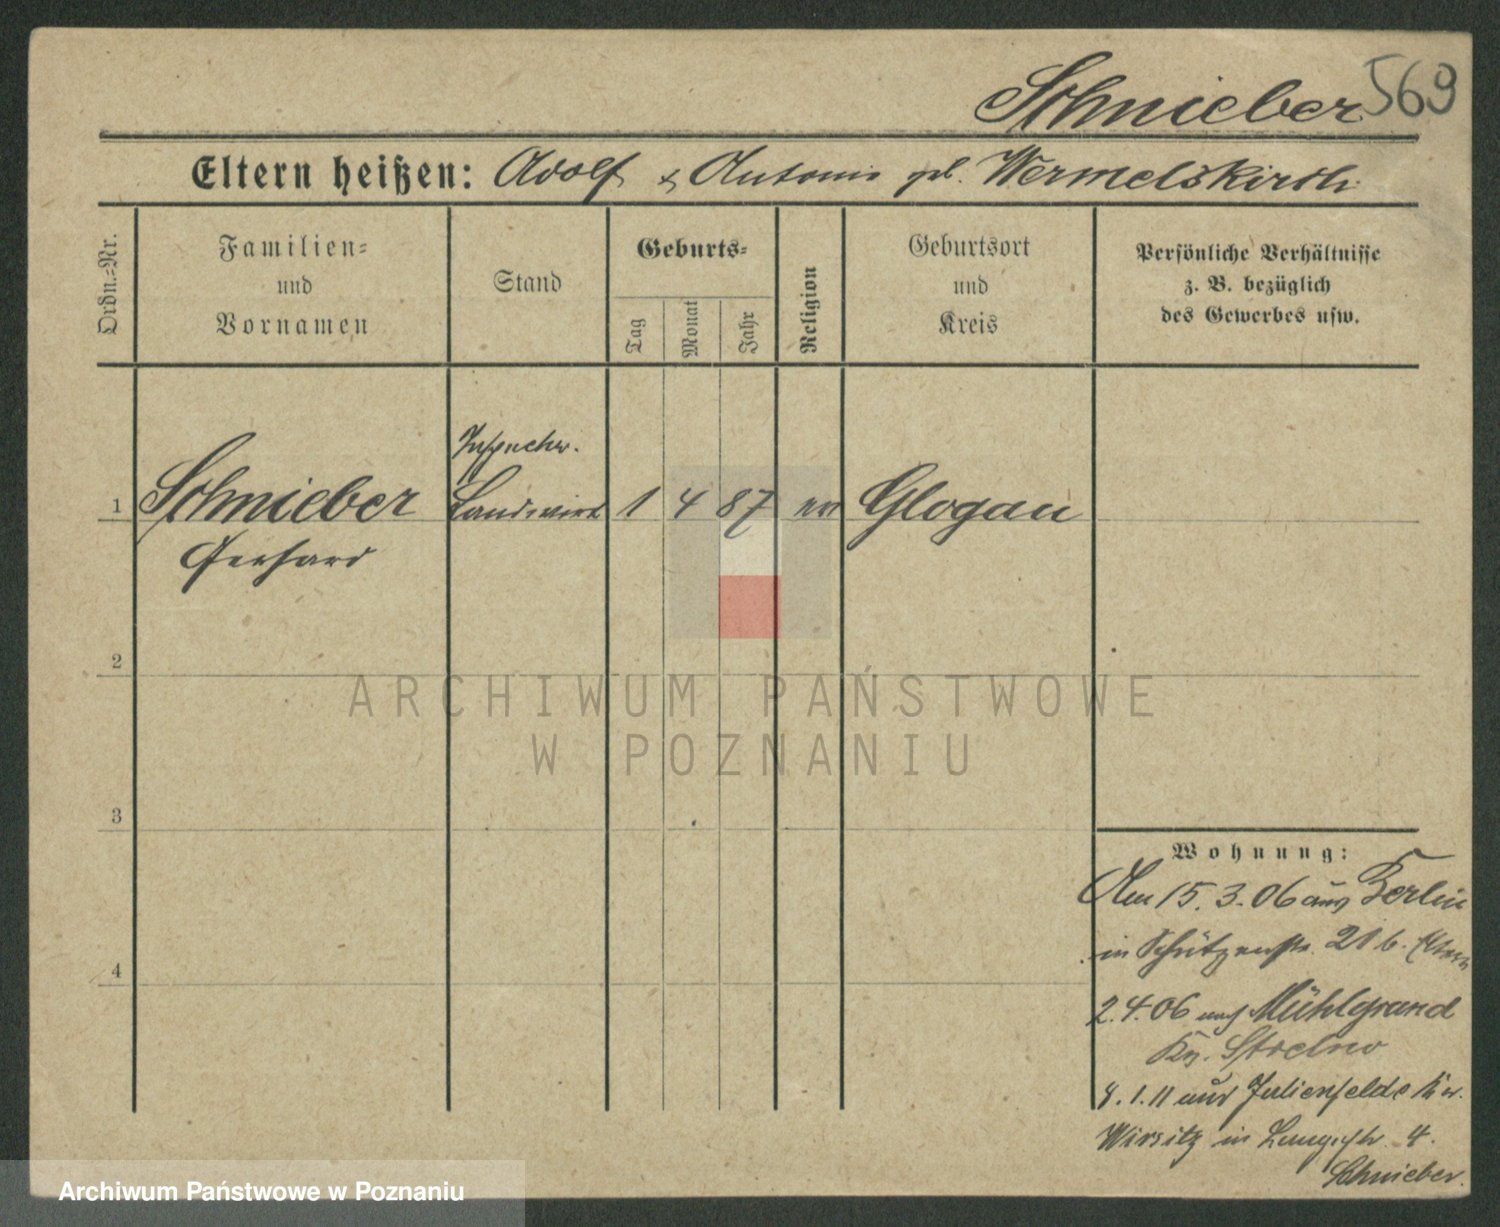 Schnieber 569
Eltern heißen: Adolf & Antonie geb. Wermelskirch
Ordn.-Nr.
Familien-
und
Vornamen
Stand
Geburts-
Tag
Monat
Jahr
Religion
Geburtsort
und
Kreis
Persönliche Verhältnisse
z. B. bezüglich
des Gewerbes usw.
Inspector.
1 Schnieber Landwirt 1 4 87 Glogau
Gerhard
2
ARCHIWUM PAŃSTWOWE
W POZNANIU
3
Wohnung:
Am 15.3.06 aus Berlin
in Schützenstr. 28 b. Eltern
4
2.4.06 nach Mühlgrund
Kr. Strelno
8.1.11 aus Julienfelde Kr.
Wirsitz in Langestr. 4.
Schnieber.
Archiwum Państwowe w Poznaniu